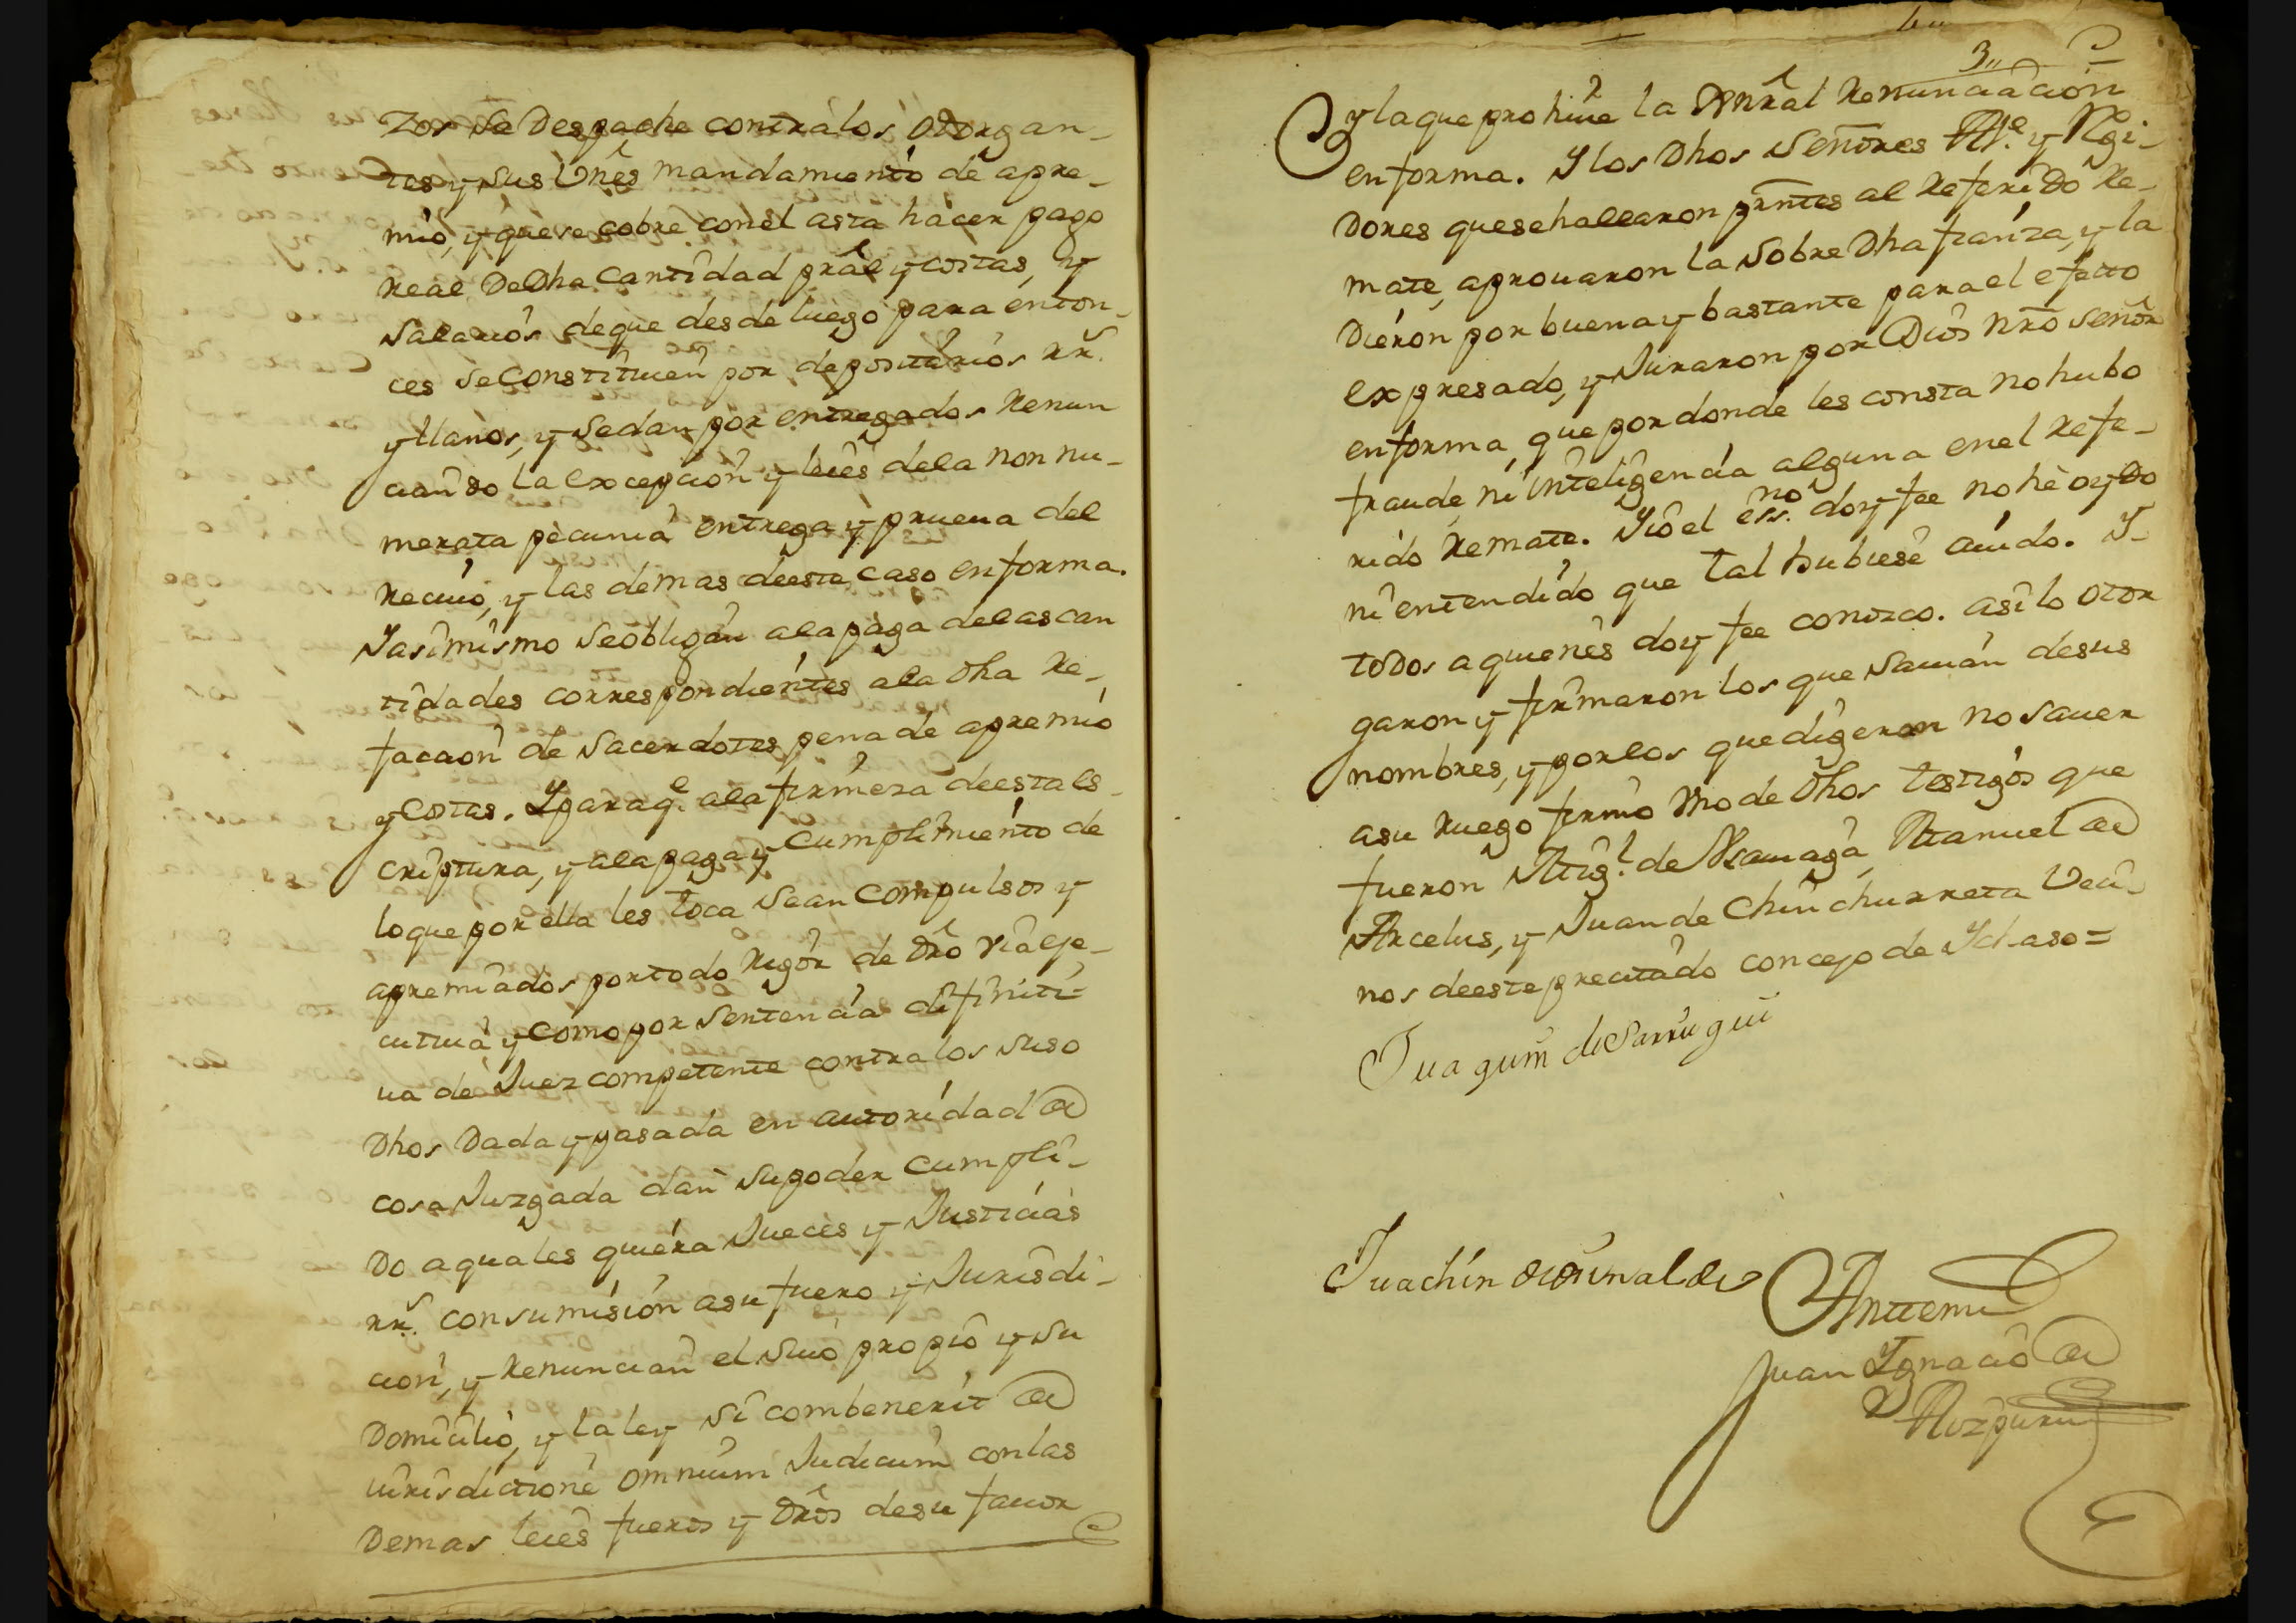 zos se Despache contra los otorgan-
tes y sus Vnes mandamiento de apre-
mio, y que se cobre con el asta hacer pago
Real De Dha Cantidad pral y costas, y
salarios de que desde luego para enton-
ces se Constituien por depositarios rr.s
y llanos, y se dan por entregados Renun
ciando la excepcion y leies de la non nu-
merata pecunia entrega y prueua del
Reciuo, y las demas de este caso en forma.
Y asi mismo se obligan a la paga de las can
tidades correspondientes a la dha Re-
facaon de Sacerdotes pena de apremio
y Costas. Y para q.e a la firmeza de esta es-
criptura, y a la paga y Cumplimiento de
lo que por ella les toca sean Compulsos y
apremiados por todo Rigor de dro via eje-
cutiua y como por Sentencia difiniti-
ua de Juez competente contra los suso
Dhos Dada y pasada en autoridad de
cosa Juzgada dan su poder Cumpli-
Do a quales quiera Jueces y Justicias
rr.s con sumision a su fuero y Jurisdi-
cion, y Renuncian el suio propio y su
Domicilio, y la ley Si combenerit de
iurisdictione omnium Judicum con las
Demas leies fueros y dros de su fauor
3,,
y la que prohiue la Genral Renunciacion
en forma. Y los Dhos Señores Al.e y Regi-
Dores que se hallaron prntes al Referido Re-
mate, aprouaron la sobre Dha fianza, y la
Dieron por buena y bastante para el efecto
expresado, y Juraron por Dios Nro Señor
en forma, que por donde les consta no hubo
fraude, ni inteligencia alguna en el Refe-
rido Remate. Yo el ess.no doy fee no hè oydo
ni entendido que tal hubiese auido. Y
todos a quienes doy fee conozco. asi lo otor
garon y firmaron los que sauian de sus
nombres, y por los que digeron no sauer
a su Ruego firmo Vno de Dhos testigos que
fueron Mig.l de Manuel de
Arcelus, y Juan de Chinchurreta Veci-
nos de este precitado concejo de Ichaso=
Juaquin de Sarrugui
Juachin
Antemi
Juan Ygnacio de